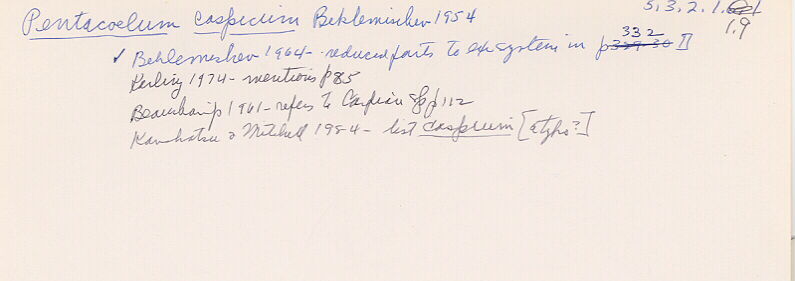 Pentacoelum caspicum Beklemischev 1954
5.3.2.1.
1.9
✓ Beklemeshev 1964 - reduced parts to ex system in p 332 II
Karling 1974 - mentions p85
Beauchamp 1961 - refers to Caspian sp p 112
Kawakatsu & Mitchell 1984 - list caspicum